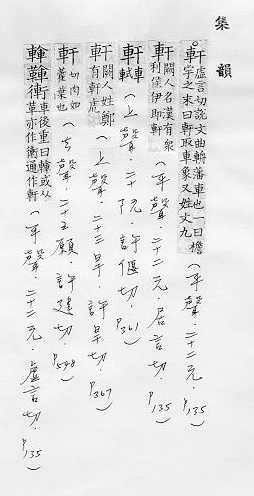 集韻
軒 虛言切說文曲輈藩車也一曰檐宇之末曰軒取車象又姓文九(平聲.二十二元.P135)
軒 闕人名漢有衆利侯伊即軒(平聲.二十二元.居言切.P135)
軒 車軾(上聲.二十阮.許偃切.P361)
軒 闕人姓鄭有軒虎(上聲.二十三旱.許旱切.P367)
軒 切肉如藿葉也(去聲.二十五願.許建切.P548)
車後重曰或从革亦作衡通作軒(平聲.二十二元.虛言切.P135)